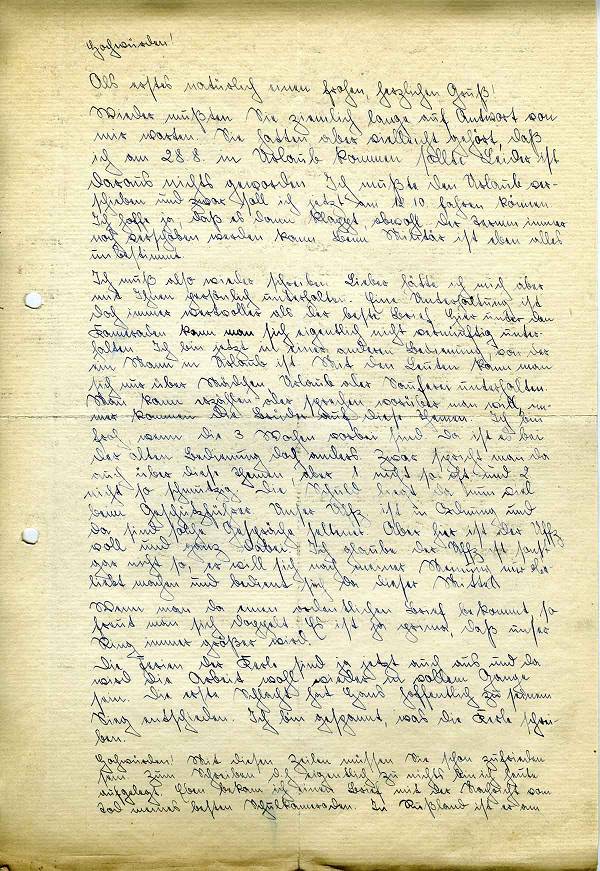 Hochwürden!
Als erstes natürlich einen frohen, herzlichen Gruß!
Wieder mußten Sie ziemlich lange auf Antwort von
mir warten. Sie hatten aber vielleicht gehört, daß
ich am 28.8. in Urlaub kommen sollte. Leider ist
daraus nichts geworden. Ich mußte den Urlaub ver-
schieben und zwar soll ich jetzt am 10 fahren können.
Ich hoffe ja, daß es dann klappt, obwohl der Termin immer
noch verschoben werden kann. Beim Militär ist eben alles
unbestimmt.
Ich muß also wieder schreiben. Lieber hätte ich mich aber
mit Ihnen persönlich unterhalten. Eine Unterhaltung ist
doch immer wertvoller als der beste Brief. Hier unter den
Kameraden kann man sich eigentlich nicht vernünftig unter-
halten. Ich bin jetzt in einer anderen Bedienung, von der
ein Mann in Urlaub ist. Mit den Leuten kann man
sich nur über Mädchen, Urlaub oder Sauferei unterhalten.
Man kann erzählen oder sprechen worüber man will, im-
mer kommen die beiden auf diese Themen. Ich bin
froh, wenn die 3 Wochen vorbei sind. Da ist es bei
der alten Bedienung doch anders. Zwar spricht man da
auch über diese Themen, aber 1. nicht so oft und 2.
nicht so schmutzig. Die Schuld liegt da zum viel
beim Geschützführer. Unser Uffz. ist in Ordnung und
da sind solche Gespräche seltener. Aber hier ist der Uffz.
voll und ganz dabei. Ich glaube der Uffz. ist sonst
gar nicht so, er will sich nach meiner Meinung nur be-
liebt machen und bedient sich da dieser Mittel.
Wenn man da einen ordentlichen Brief bekommt, so
freut man sich doppelt. Es ist ja prima, daß unser
Ring immer größer wird.
Die Ferien der Kerle sind ja jetzt auch aus und da
wird die Arbeit wohl wieder in vollem Gange
sein. Die erste Schlacht hat Hans hoffentlich zu seinem
Sieg entschieden. Ich bin gespannt, was die Kerle schrei-
ben.
Hochwürden! Mit diesen Zeilen müssen Sie schon zufrieden
sein. Zum Schreiben d.h. eigentlich zu nichts bin ich heute
aufgelegt. Eben bekam ich einen Brief mit der Nachricht vom
Tod meines besten Schulkameraden. In Rußland ist er am